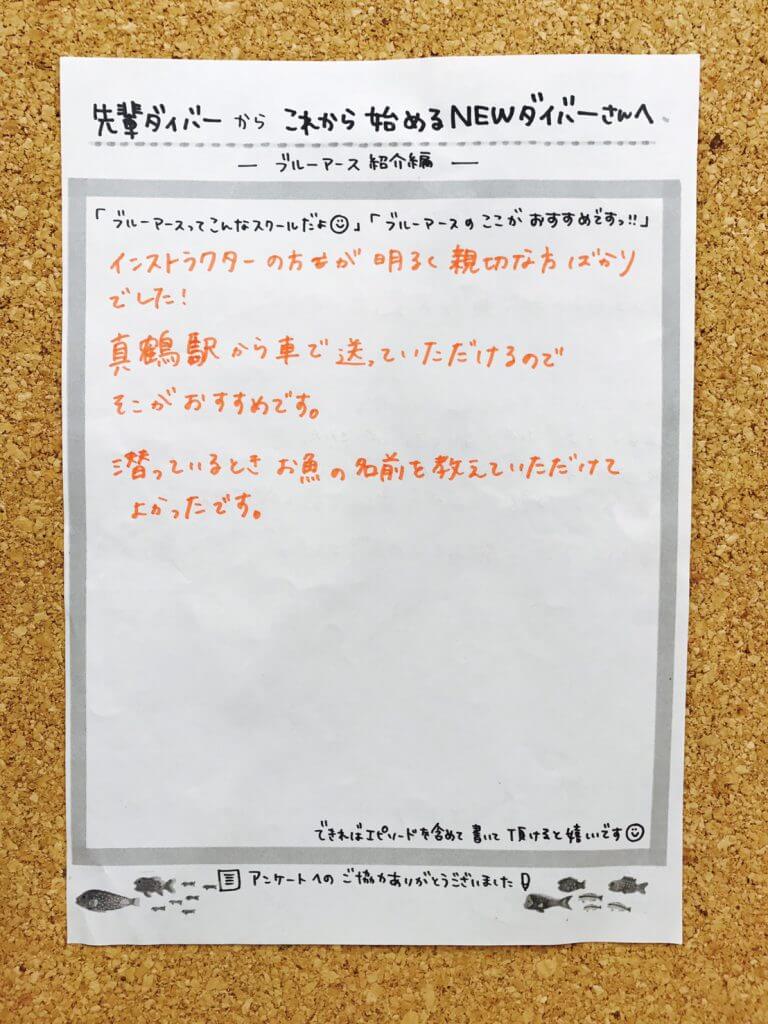 先輩ダイバーから これから始めるNEWダイバーさんへ
― ブルーアース紹介編 ―
「ブルーアースってこんなスクールだよ☺」「ブルーアースのここがおすすめですっ!!」
インストラクターの方々が明るく親切な方ばかり
でした!
真鶴駅から車で送っていただけるので
そこがおすすめです。
潜っているときお魚の名前を教えていただけて
よかったです。
できればエピソードを含めて書いて頂けると嬉しいです☺
アンケートへのご協力ありがとうございました